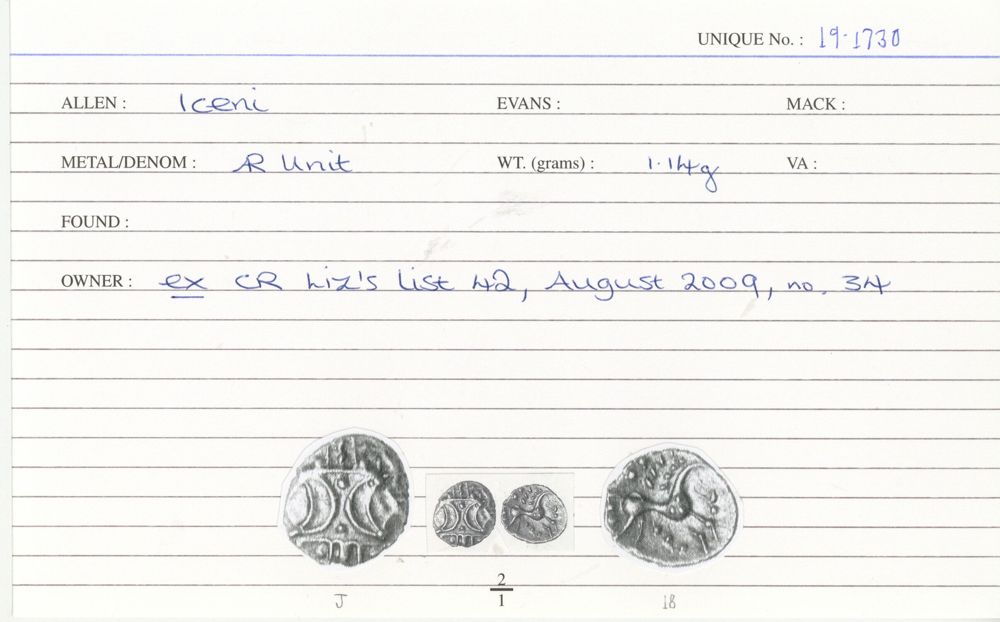 UNIQUE No. : 19.1730
ALLEN : Iceni EVANS : MACK :
METAL/DENOM : AR Unit WT. (grams) : 1.14g VA :
FOUND :
OWNER : ex CR Liz's List 42, August 2009, no. 34
2
1
J 18